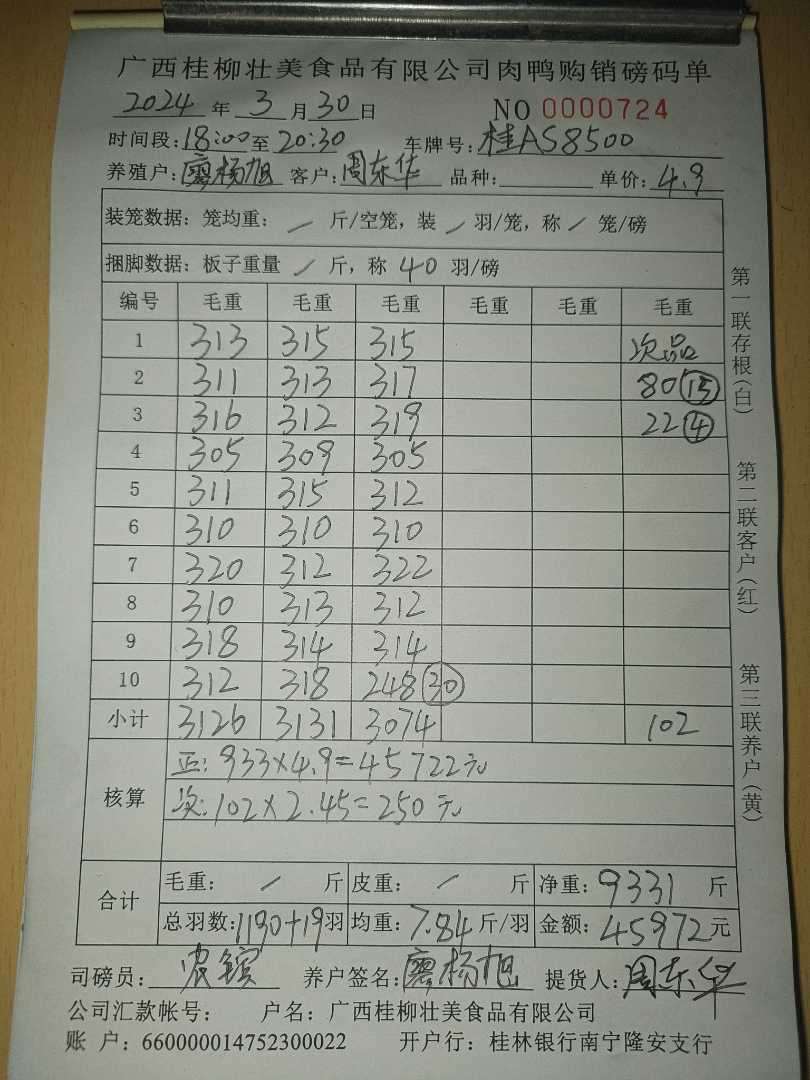 广西桂柳壮美食品有限公司肉鸭购销磅码单
2024 年 3 月 30 日 NO 0000724
时间段: 18:00 至 20:30 车牌号: 桂AS8500
养殖户: 廖杨旭 客户: 周东华 品种: 单价: 4.9
装笼数据: 笼均重: / 斤/空笼, 装 / 羽/笼, 称 / 笼/磅
捆脚数据: 板子重量 / 斤, 称 40 羽/磅
编号 毛重 毛重 毛重 毛重 毛重 毛重
1 313 315 315 次品
2 311 313 317 80 (15)
3 316 312 319 22 (4)
4 305 309 305
5 311 315 312
6 310 310 310
7 320 312 322
8 310 313 312
9 318 314 314
10 312 318 248 (30)
小计 3126 3131 3074 102
核算
正: 933×4.9=45722元
次: 102×2.45=250元
合计
毛重: / 斤 皮重: / 斤 净重: 9331 斤
总羽数: 1190+19 羽 均重: 7.84 斤/羽 金额: 45972 元
司磅员: 农镔 养户签名: 廖杨旭 提货人: 周东华
公司汇款帐号: 户名: 广西桂柳壮美食品有限公司
账 户: 660000014752300022 开户行: 桂林银行南宁隆安支行
第一联存根(白)
第二联客户(红)
第三联养户(黄)